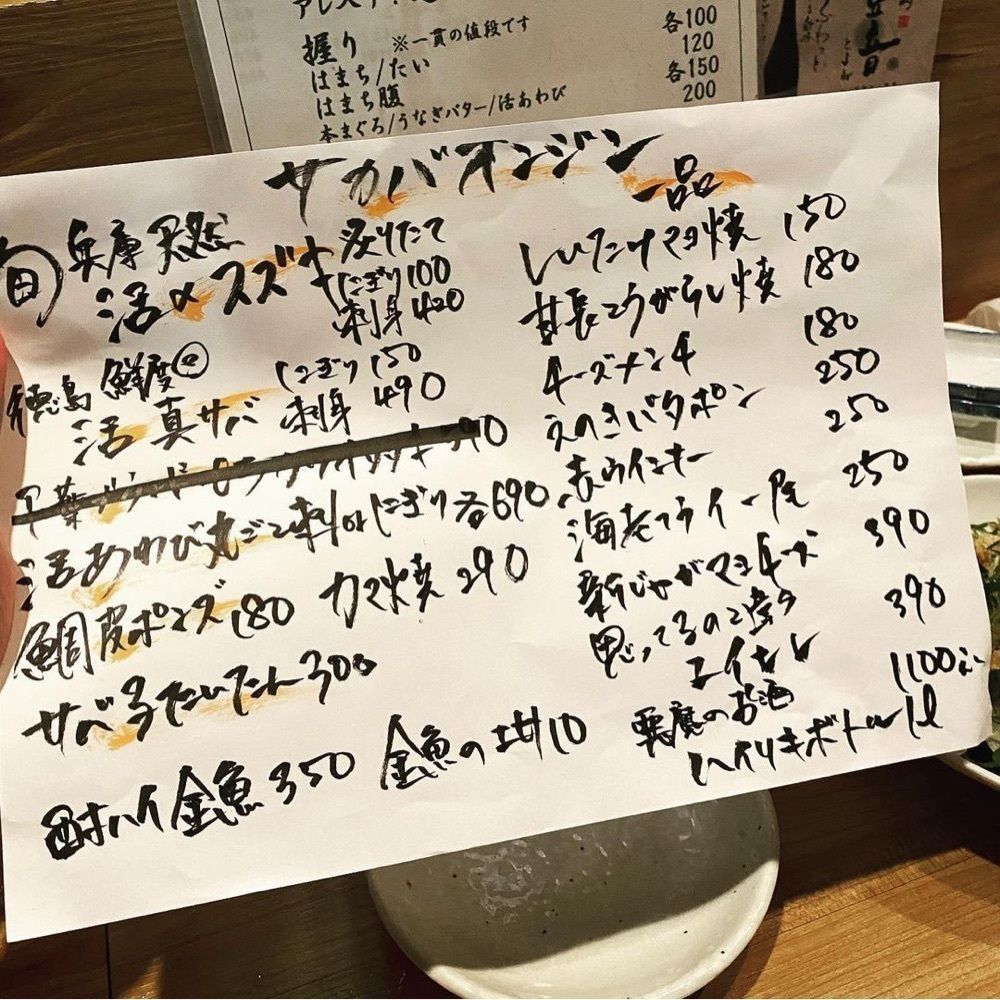 握り ※一貫の値段です 各100
はまち/たい 120
はまち腹 各150
本まぐろ/うなぎバター/活あわび 200
サカバオンジン
旬 兵庫天然
活〆スズキ
炙りたて
にぎり100
刺身420
徳島 鮮度◎
活真サバ
にぎり150
刺身490
活あわび丸ごと刺orにぎり各690
鯛皮ポンズ180 カマ焼290
サバ子たいたん300
酎ハイ金魚350 金魚の
一品
しいたけマヨ焼 150
甘長とうがらし焼 180
チーズメンチ 180
えのきバタポン 250
赤ウインナー 250
海老フライ一尾 250
新じゃがマヨチーズ 390
エイヒレ 390
悪魔のお酒 1100
ハイリキボトル1ℓ